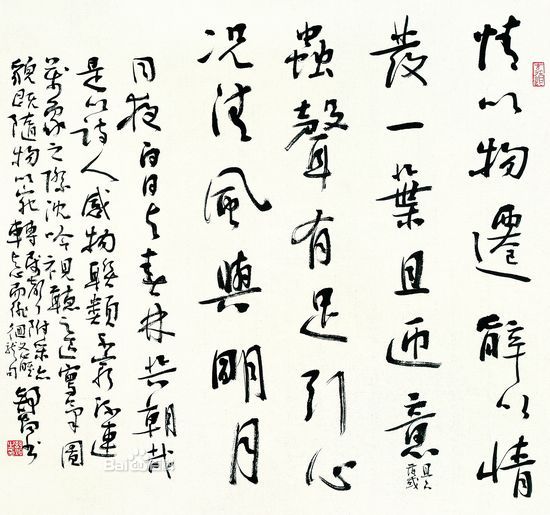 情以物遷辭以情
發一葉且迎意
且下落或
蟲聲有足引心
況清風與明月
同夜白日与春林共朝哉
是以诗人感物聯類不窮流連
萬象之際沈吟視聽之區寫氣圖
貌既隨物以宛轉
Bai
百科